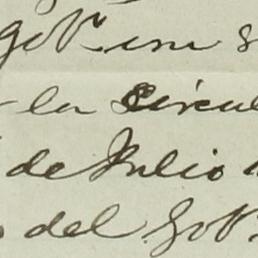 gobr en s
la circul
de Julio
del Gobr